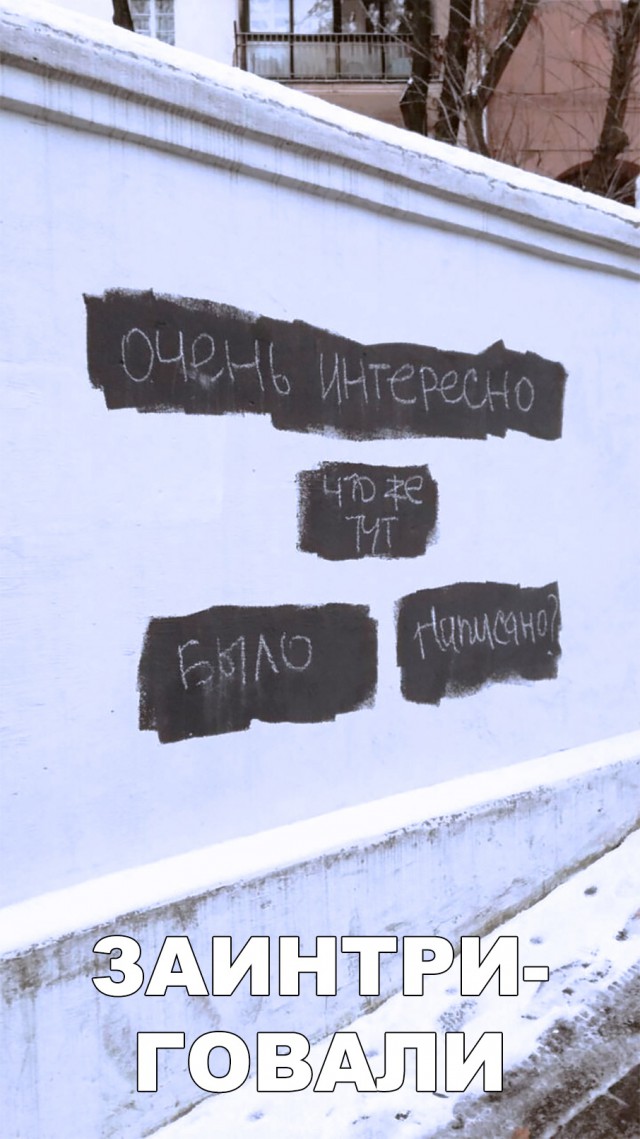 очень интересно
что же
тут
было написано?
ЗАИНТРИ-
ГОВАЛИ